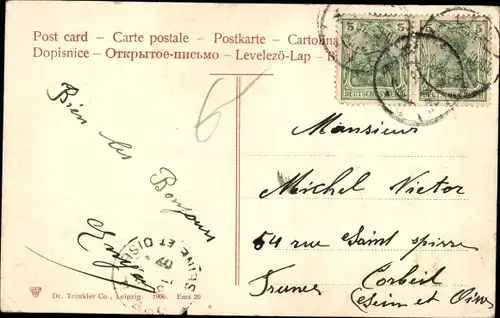 Post card – Carte postale – Postkarte – Cartolina
Dopisnice – Открытое-письмо – Levelező-Lap –
5 5 5
DEUTSCHES REICH
6
Bien les Bonjours
Monsieur
Michel Victor
54 rue Saint Spierre
Corbeil
(Sein et Oise
SEINE ET OISE
09
Dr. Trenkler Co., Leipzig. 1906. Enrs 20